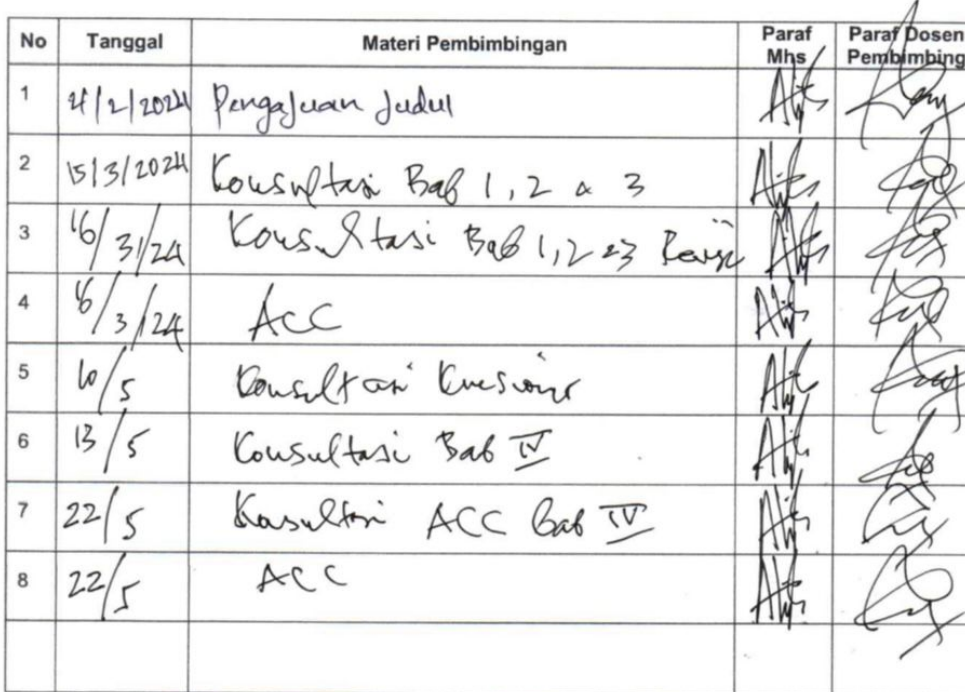 No Tanggal Materi Pembimbingan Paraf Mhs Paraf Dosen Pembimbing
1 21/2/2024 Pengajuan Judul
2 15/3/2024 Konsultasi Bab 1, 2 & 3
3 16/3/24 Konsultasi Bab 1, 2 & 3 Revisi
4 /3/24 ACC
5 10/5 Konsultasi Kuesioner
6 13/5 Konsultasi Bab IV
7 22/5 Konsultasi ACC Bab IV
8 22/5 ACC